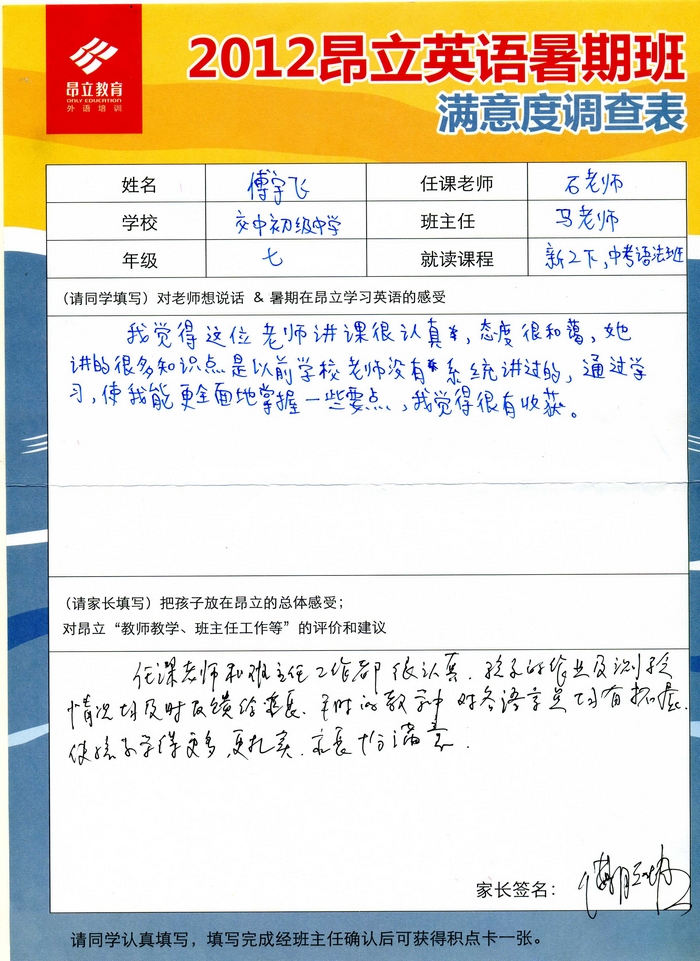 昂立教育
ONLY EDUCATION
外语培训
2012昂立英语暑期班
满意度调查表
姓名 傅宇飞 任课老师 石老师
学校 交中初级中学 班主任 马老师
年级 七 就读课程 新2下,中考语法班
(请同学填写)对老师想说话 & 暑期在昂立学习英语的感受
我觉得这位老师讲课很认真,态度很和蔼,她
讲的很多知识点是以前学校老师没有系统讲过的,通过学
习,使我能更全面地掌握一些要点,我觉得很有收获。
(请家长填写)把孩子放在昂立的总体感受;
对昂立“教师教学、班主任工作等”的评价和建议
任课老师和班主任工作都很认真.孩子的作业及测验
情况均及时反馈给家长.平时的教学中对各语言点均有拓展.
使孩子学得更多,更扎实.家长十分满意.
家长签名:
请同学认真填写,填写完成经班主任确认后可获得积点卡一张。